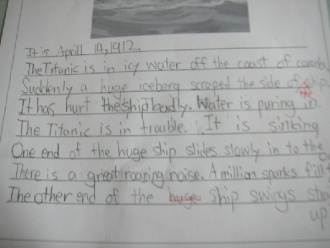 It is April 14, 1912.
The Titanic is in icy water off the coast of
Suddenly a huge iceberg scraped the side of ship
It has hurt the ship badly. Water is puring in.
The Titanic is in trauble. It is sinking
One end of the huge ship slides slowly in to the
There is a great roaring noise. A million sparks fill
The other end of the huge ship swings
up